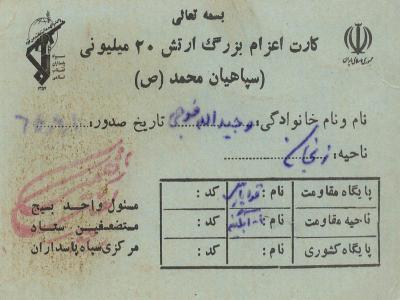 بسمه تعالی
کارت اعزام بزرگ ارتش ۲۰ میلیونی
(سپاهیان محمد (ص
جمهوری اسلامی ایران
نام و نام خانوادگی: وحیدالله تاریخ صدور:
ناحیه: زنجان
پایگاه مقاومت نام: کد:
ناحیه مقاومت نام: کد:
پایگاه کشوری نام: کد:
مسئول واحد بسیج
مستضعفین ستاد
مرکزی سپاه پاسداران